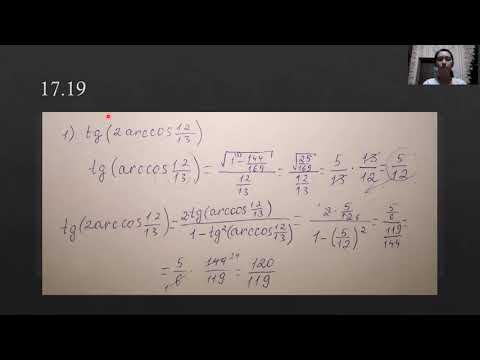 17.19
1). tg(2arccos 12/13)
tg(arccos 12/13) = √(1 - 144/169) / (12/13) = √(25/169) / (12/13) = 5/13 · 13/12 = 5/12
tg(2arccos 12/13) = 2tg(arccos 12/13) / (1 - tg²(arccos 12/13)) = 2 · 5/12 6 / (1 - (5/12)²) = (5/6) / (119/144) =
= 5/6 · 144 24/119 = 120/119